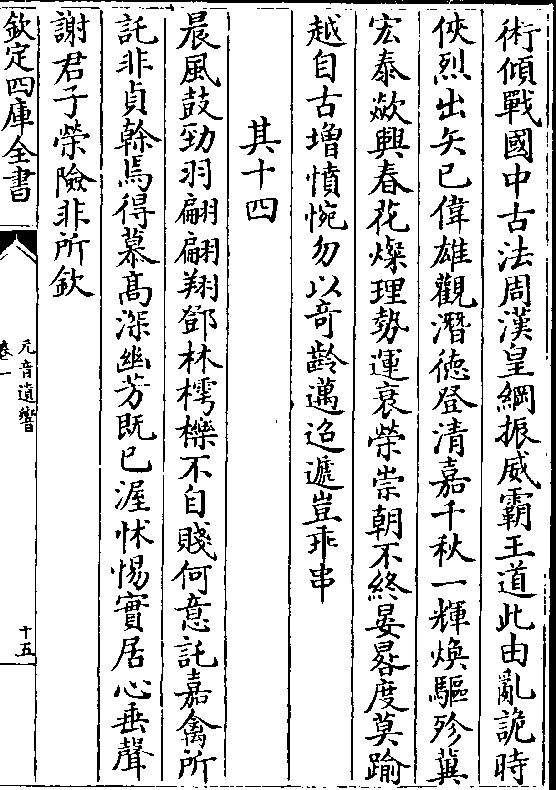 術傾戰國中古法周漢皇綱振威霸王道此由亂詭時
俠烈出矢已偉雄觀潛徳登清嘉千秋一輝煥驅殄冀
宏泰歘興春花燦理勢運衰榮崇朝不終晏晷度莫踰
越自古増憤惋勿以竒齡邁迢遞豈乖串
其十四
晨風鼓勁羽翩翩翔鄧林樗櫟不自賤何意託嘉禽所
託非貞榦焉得慕髙深幽芳既已渥怵惕實居心垂聲
謝君子榮險非所欽
欽定四庫全書
元音遺響
卷一
十五